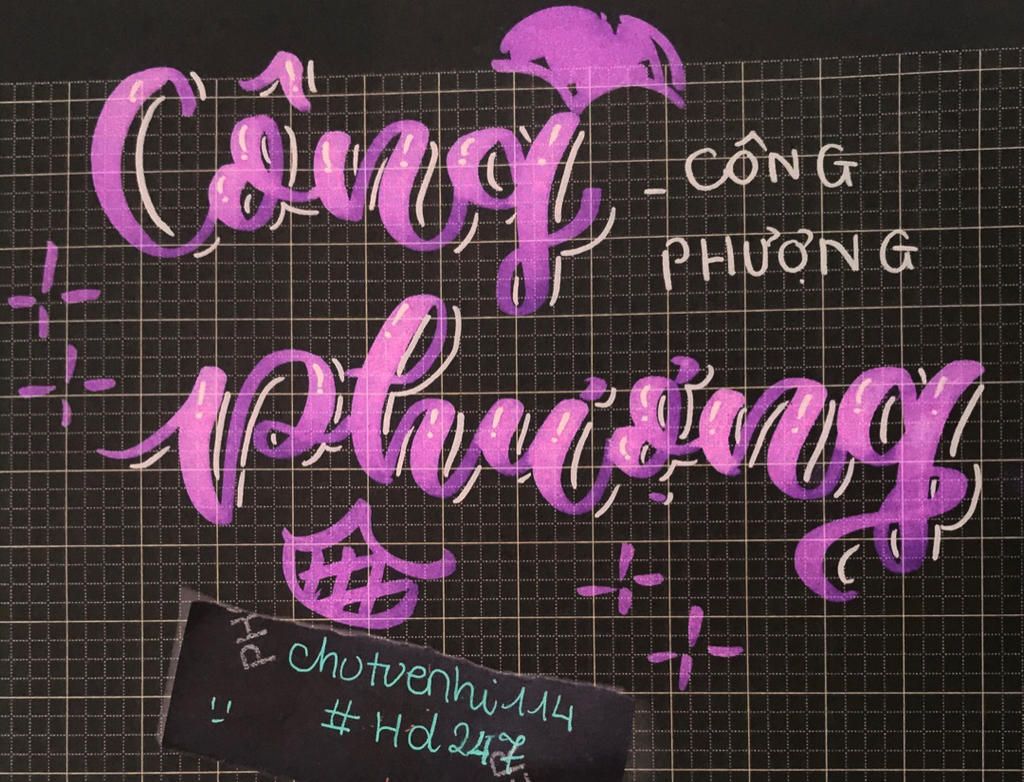 Công
- CÔNG
PHƯỢNG
Phượng
PH
chutuenhi114
# Hd247